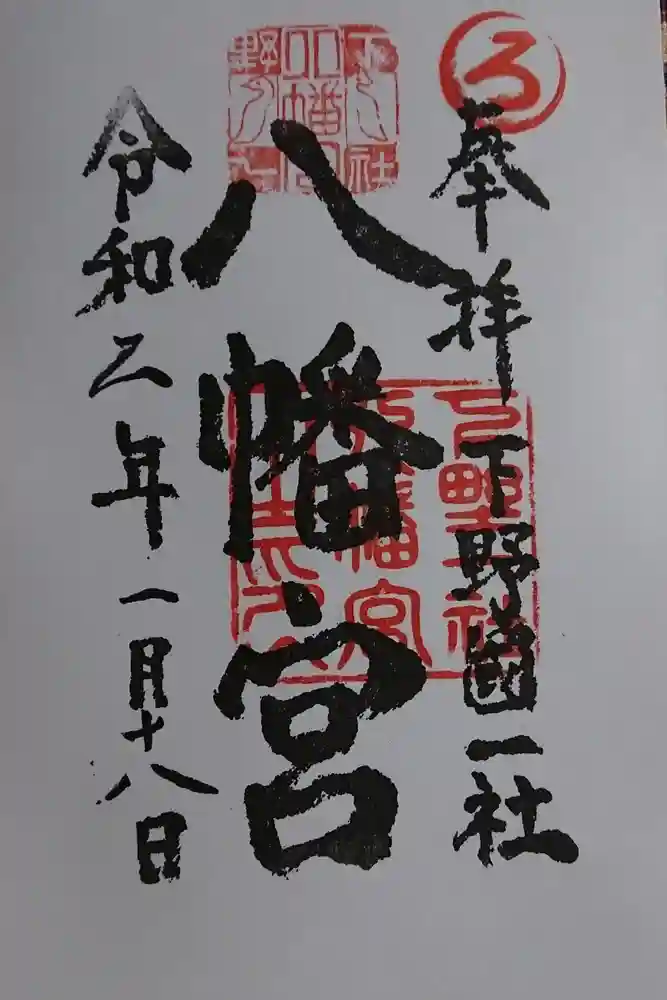 ろ
奉拝
下野國一社
八幡宮
令和乙年一月十八日